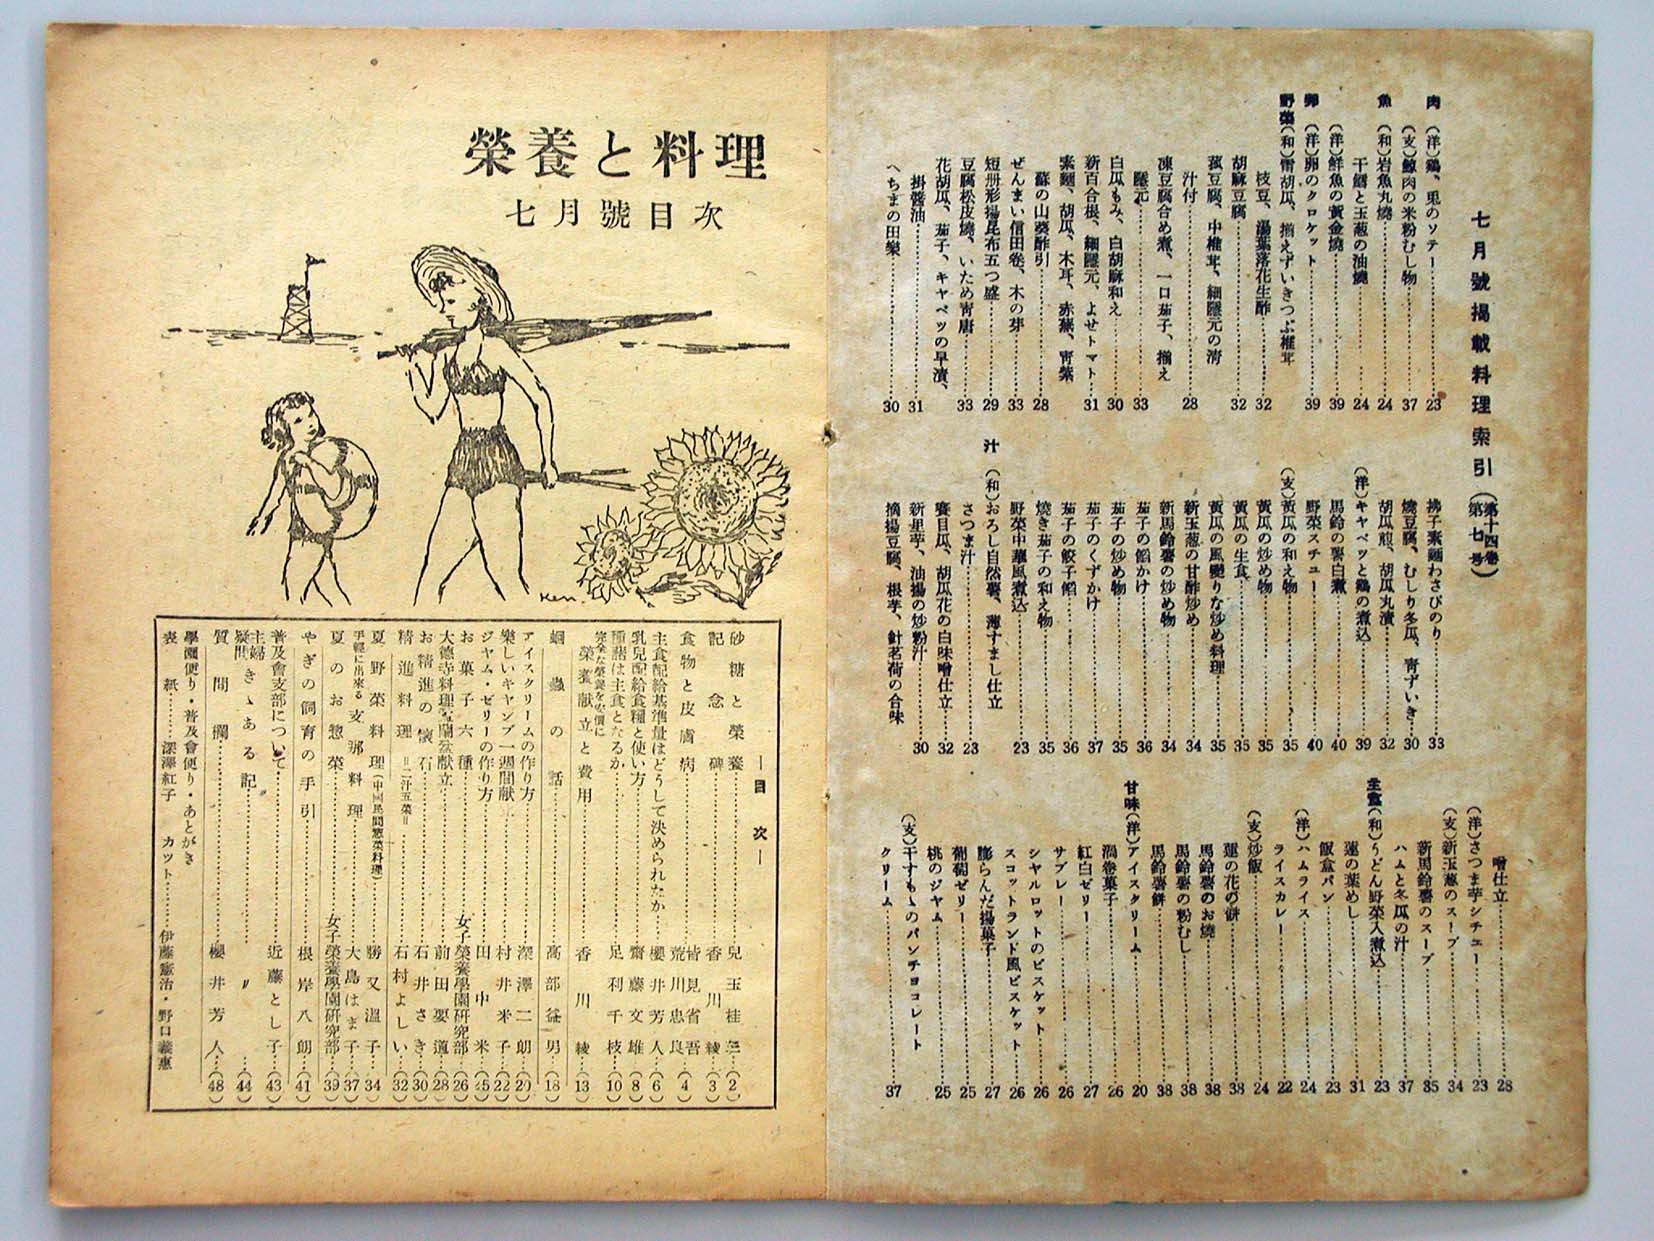 七月號掲載料理索引(第十四卷 第七号)
肉 (洋)鷄、兎のソテー……23
(支)鯨肉の米粉むし物……37
魚 (和)岩魚丸燒……24
干鱈と玉葱の油燒……24
(洋)鮮魚の黄金燒……39
卵 (洋)卵のクロケット……39
野菜(和)雷胡瓜、揃えずいきつぶ椎茸
枝豆、湯葉落花生酢……32
胡麻豆腐……32
菰豆腐、中椎茸、細隱元の淸
汁付……28
凍豆腐合め煮、一口茄子、揃え
隱元……33
白瓜もみ、白胡麻和え……30
新百合根、細隱元、よせトマト……31
素麺、胡瓜、木耳、赤蕪、靑紫
蘇の山葵酢引……28
ぜんまい信田卷、木の芽……33
短册形揚昆布五つ盛……29
豆腐松皮燒、いため靑唐……33
花胡瓜、茄子、キャベツの早漬、
掛醬油……31
へちまの田樂……30
拂子素麺わさびのり……33
燒豆腐、むしり冬瓜、靑ずいき……30
胡瓜煎、胡瓜丸漬……32
(洋)キャベツと鷄の煮込……39
馬鈴の薯白煮……40
野菜スチュー……40
(支)黄瓜の和え物……35
黄瓜の炒め物……35
黄瓜の生食……35
黄瓜の風變りな炒め料理……35
新玉葱の甘酢炒め……34
新馬鈴薯の炒め物……34
茄子の餡かけ……36
茄子の炒め物……35
茄子のくずかけ……37
茄子の餃子餡……36
燒き茄子の和え物……35
野菜中華風煮込……23
汁 (和)おろし自然薯、薄すまし仕立
さつま汁……23
賽目瓜、胡瓜花の白味噌仕立……32
新里芋、油揚の炒粉汁……30
摘揚豆腐、根芋、針茗荷の合味
噌仕立……28
(洋)さつま芋シチュー……23
(支)新玉葱のスープ……34
新馬鈴薯のスープ……35
ハムと冬瓜の汁……37
主食(和)うどん野菜入煮込……23
蓮の葉めし……31
飯盒パン……23
(洋)ハムライス……24
ライスカレー……22
(支)炒飯……24
蓮の花の餅……38
馬鈴薯のお燒……38
馬鈴薯の粉むし……38
馬鈴薯餅……38
甘味(洋)アイスクリーム……20
渦卷菓子……26
紅白ゼリー……27
サブレー……26
シャルロットのビスケット……26
スコットランド風ビスケット……26
膨らんだ揚菓子……27
葡萄ゼリー……25
桃のジャム……25
(支)干すもゝのパンチョコレート
クリーム……37
榮養と料理
七月號目次
Ken
―目次―
砂糖と榮養……兒玉桂三…(2)
記念碑……香川綾…(3)
食物と皮膚病……皆見省吾 荒川忠良…(4)
主食配給基準量はどうして決められたか……櫻井芳人…(6)
乳兒配給食糧と使い方……齋藤文雄…(8)
種諸は主食となるか……足利千枝…(10)
完全な榮養を安價に 榮養献立と費用……香川綾…(13)
蛔蟲の話……高部益男…(18)
アイスクリームの作り方……深澤二朗…(20)
樂しいキャンプ一週間献立……村井米子…(22)
ジャム・ゼリーの作り方……田中米…(25)
お菓子六種……女子榮養學園研究部…(26)
大德寺料理盂蘭盆献立……前田要道…(28)
お精進の懷石……石井さき…(30)
精進料理=二汁五菜=……石村よしい…(32)
夏野菜料理(中國民間惣菜料理)……勝又溫子…(34)
手輕に出來る支那料理……大島はま子…(37)
夏のお惣菜……女子榮養學園研究部…(39)
やぎの飼育の手引……根岸八朗…(41)
普及會支部について……近藤とし子…(43)
主婦疑問 きゝある記……〃…(44)
質問欄……櫻井芳人…(48)
學園便り・普及會便り・あとがき
表紙……深澤紅子 カット……伊藤憲治・野口義惠